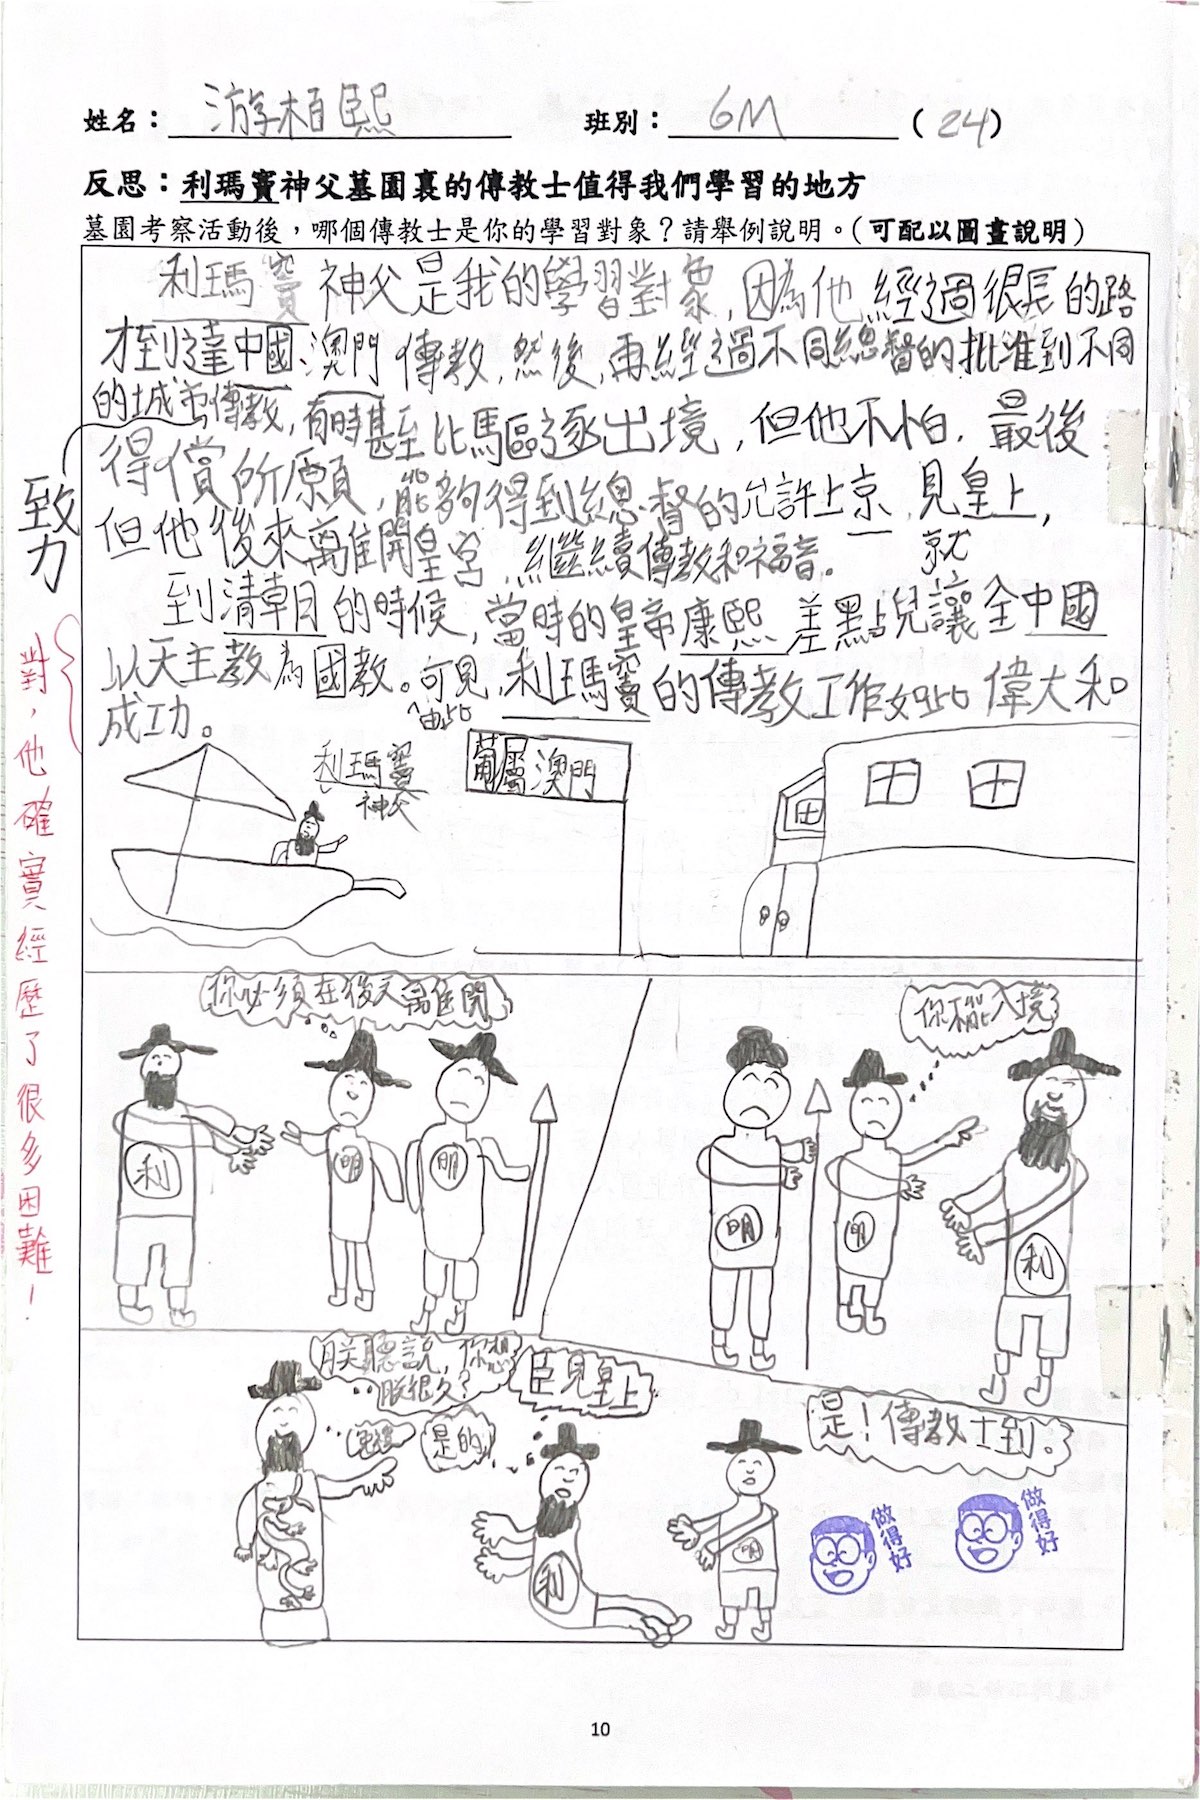 姓名：游柏熙 班別：6M (24)
反思：利瑪竇神父墓園裏的傳教士值得我們學習的地方
墓園考察活動後，哪個傳教士是你的學習對象？請舉例說明。（可配以圖畫說明）
利瑪竇神父是我的學習對象，因為他經過很長的路
才到達中國、澳門傳教，然後，再經過不同總督的批准到不同
的城市傳教，有時甚至比馬區逐出境，但他不怕，最後
得償所願，能夠得到總督的允許上京見皇上，
但他後來離開皇宮，繼續傳教和福音。
致力
到清朝的時候，當時的皇帝康熙差點兒讓全中國
就
以天主教為國教。可見，利瑪竇的傳教工作如此偉大和
由此
成功。
對，他確實經歷了很多困難！
利瑪竇
神父
葡屬澳門
你必須在後天離開
利
明
明
你不能入境
明
明
利
朕聽說，你想
朕很久？
臣見皇上
是的
是！傳教士到。
利
明
做得好
做得好
10